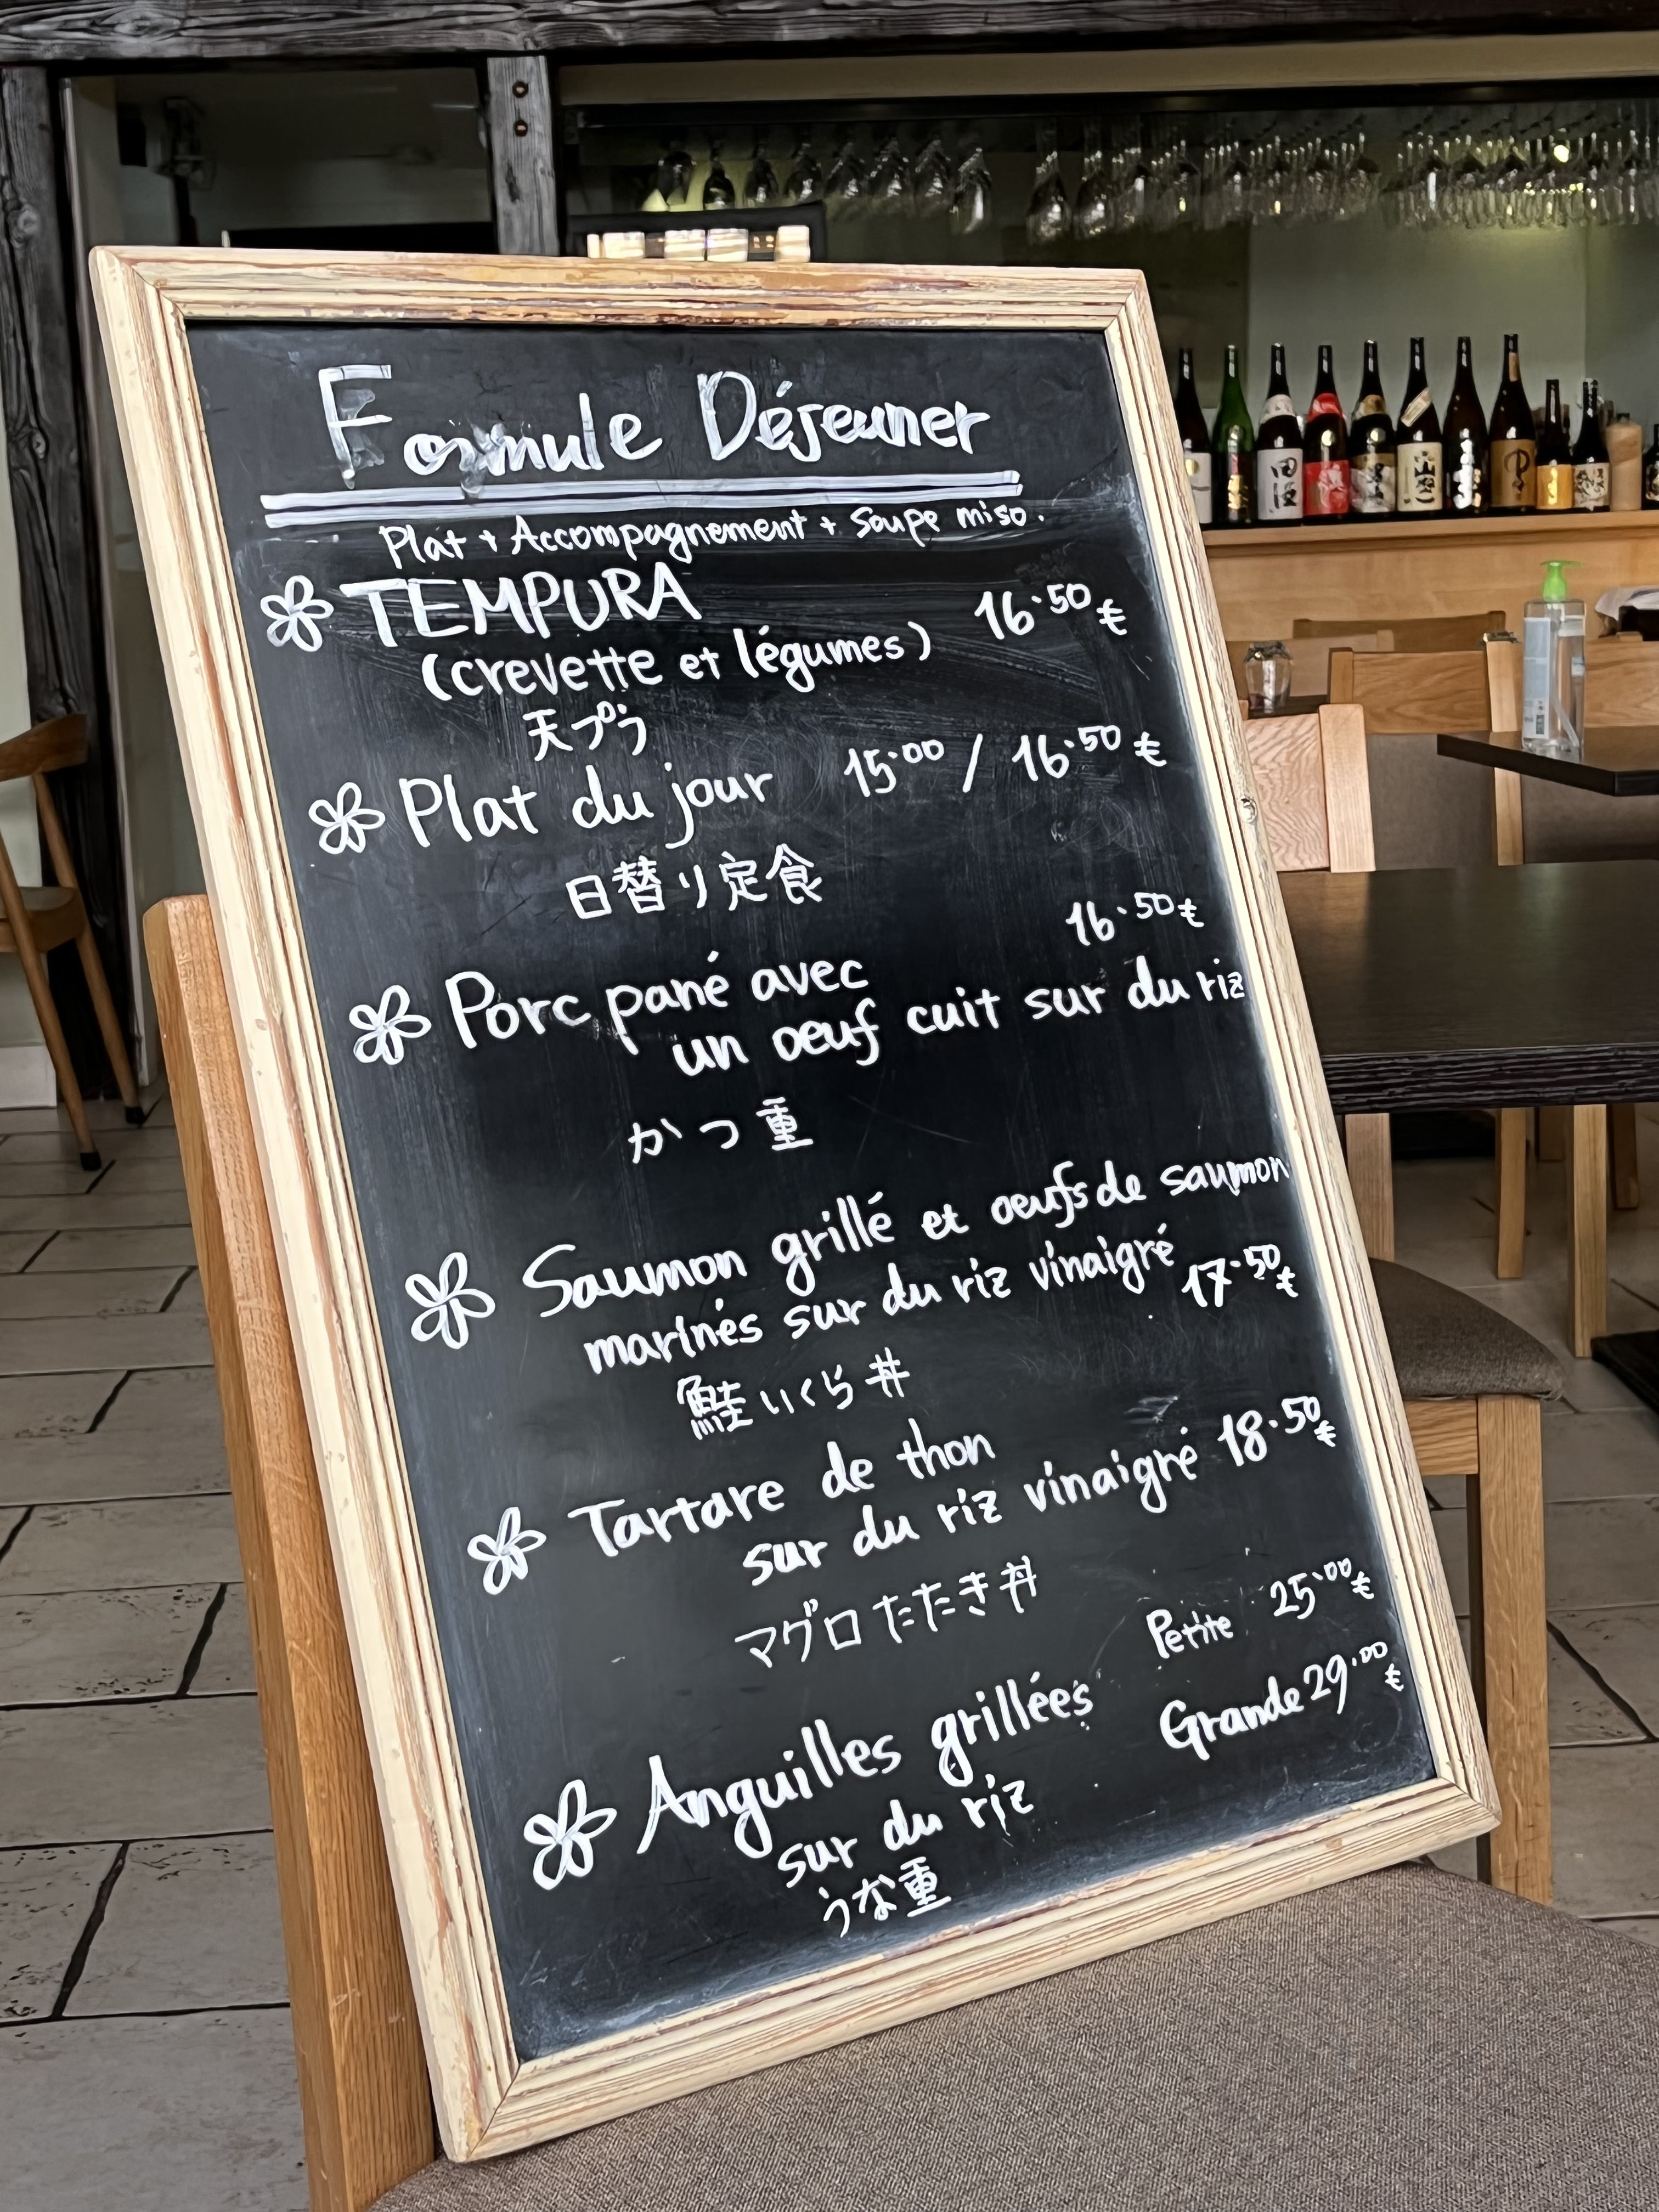 Formule Déjeuner
Plat + Accompagnement + Soupe miso.
TEMPURA 16.50 €
(crevette et légumes)
天プラ
Plat du jour 15.00 / 16.50 €
日替り定食
16.50 €
Porc pané avec
un oeuf cuit sur du riz
かつ重
Saumon grillé et oeufs de saumon
marinés sur du riz vinaigré 17.50 €
鮭いくら丼
Tartare de thon
sur du riz vinaigré 18.50 €
マグロたたき丼
Petite 25.00 €
Anguilles grillées Grande 29.00 €
sur du riz
うな重